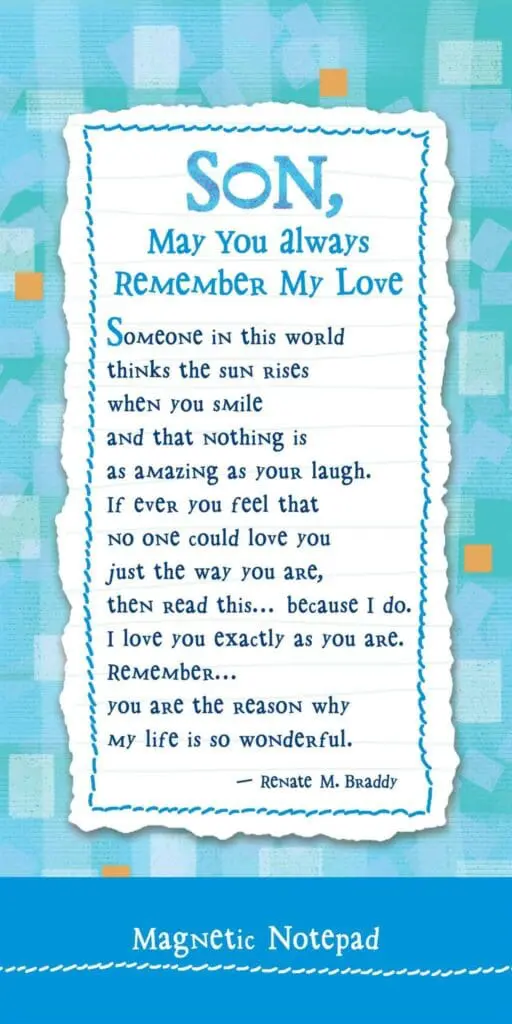 Son,
May You always
Remember My Love
Someone in this world
thinks the sun rises
when you smile
and that nothing is
as amazing as your laugh.
If ever you feel that
no one could love you
just the way you are,
then read this... because I do.
I love you exactly as you are.
Remember...
you are the reason why
my life is so wonderful.
— Renate M. Braddy
Magnetic Notepad